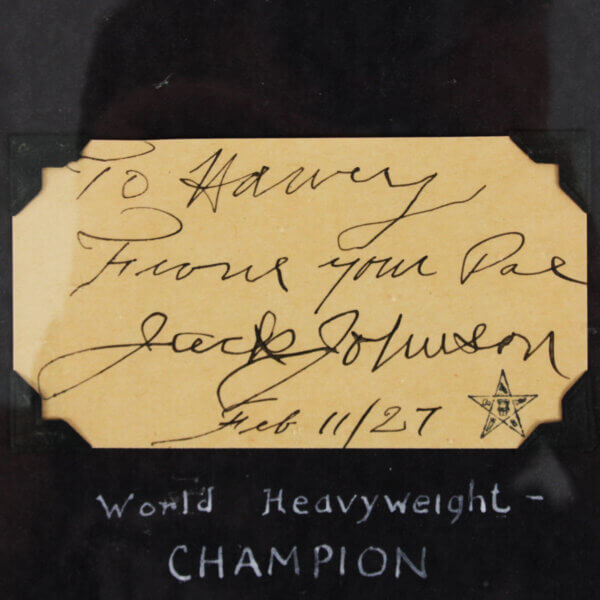 To Harvey
From your Pal
Jack Johnson
Feb 11/27
World Heavyweight -
CHAMPION